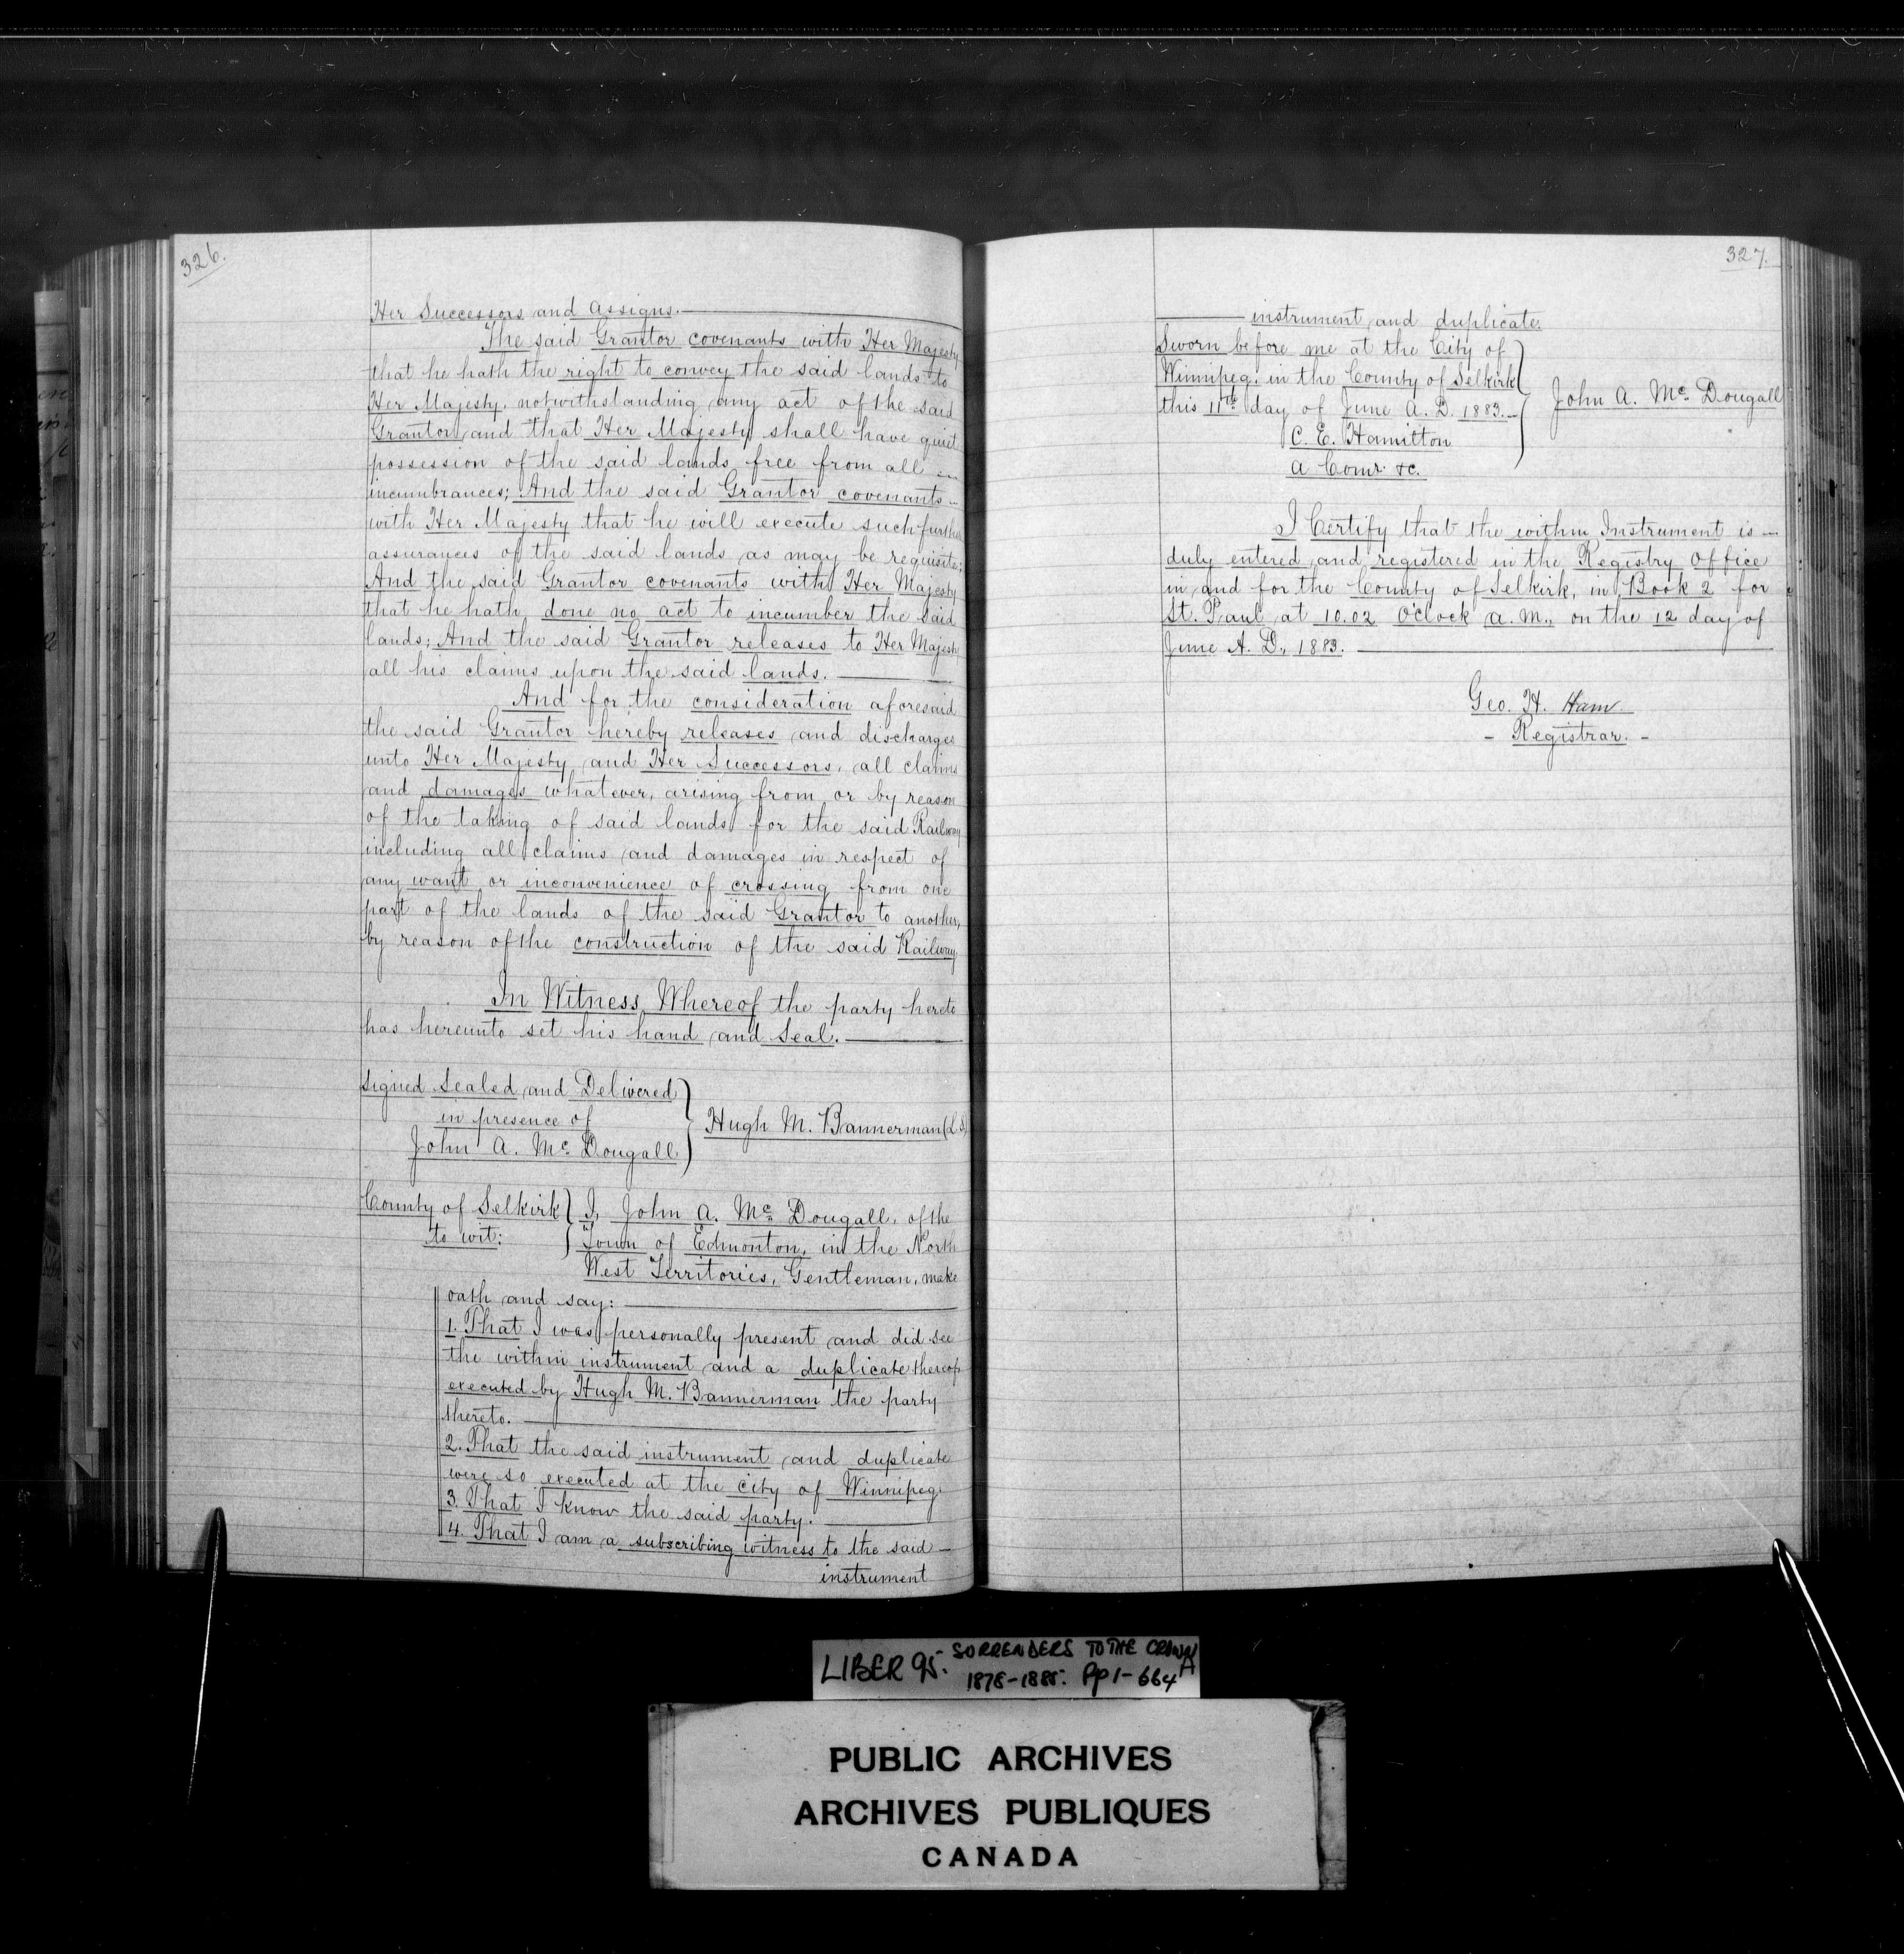 326.
Her Successors and assigns.
The said Grantor covenants with Her Majesty
that he hath the right to convey the said lands to
Her Majesty, notwithstanding any act of the said
Grantor and that Her Majesty shall have quiet
possession of the said lands free from all
incumbrances; And the said Grantor covenants
with Her Majesty that he will execute such further
assurances of the said lands as may be requisite;
And the said Grantor covenants with Her Majesty
that he hath done no act to incumber the said
lands; And the said Grantor releases to Her Majesty
all his claims upon the said lands.
And for the consideration aforesaid
the said Grantor hereby releases and discharges
unto Her Majesty and Her Successors, all claims
and damages whatever, arising from or by reason
of the taking of said lands for the said Railway
including all claims and damages in respect of
any want or inconvenience of crossing from one
part of the lands of the said Grantor to another,
by reason of the construction of the said Railway
In Witness Whereof the party hereto
has hereunto set his hand and Seal.
Signed Sealed and Delivered
in presence of
John A. Mc Dougall
Hugh M. Bannerman (L.S)
County of Selkirk
to wit:
I, John A. Mc Dougall, of the
Town of Edmonton, in the North
West Territories, Gentleman, make
oath and say:
1. That I was personally present and did see
the within instrument and a duplicate thereof
executed by Hugh M. Bannerman the party
thereto.
2. That the said instrument and duplicate
were so executed at the city of Winnipeg.
3. That I know the said party.
4. That I am a subscribing witness to the said
instrument
327.
instrument and duplicate.
Sworn before me at the City of
Winnipeg, in the County of Selkirk
this 11th day of June A.D. 1883.
C. E. Hamilton
a Comr. &c.
John A. Mc Dougall
I Certify that the within Instrument is
duly entered and registered in the Registry Office
in and for the County of Selkirk, in Book 2 for
St. Paul at 10.02 O'clock a.m., on the 12 day of
June A. D., 1883.
Geo. H. Ham
- Registrar. -
LIBER 95. SORRENDERS TO THE CROWN A
1878-1885. Pp 1-664
PUBLIC ARCHIVES
ARCHIVES PUBLIQUES
CANADA